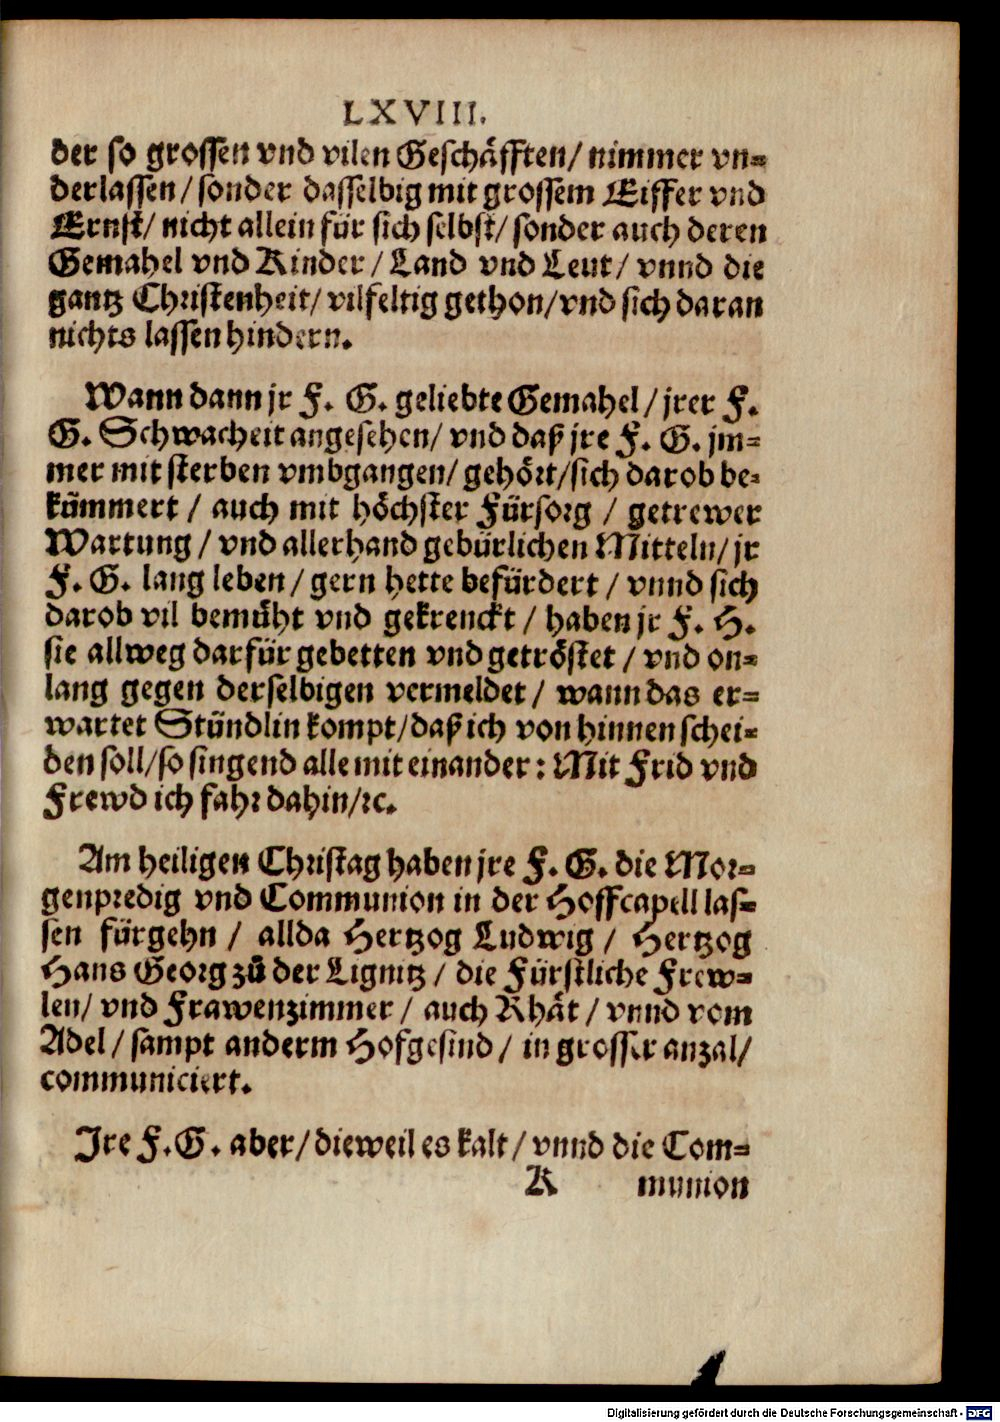 LXVIII.
der so grossen vnd vilen Geschäfften/ nimmer vn-
derlassen/ sonder dasselbig mit grossem Eiffer vnd
Ernst/ nicht allein für sich selbst/ sonder auch deren
Gemahel vnd Kinder/ Land vnd Leut/ vnnd die
gantz Christenheit/ vilfeltig gethon/ vnd sich daran
nichts lassen hindern.
Wann dann jr F. G. geliebte Gemahel/ jrer F.
G. Schwacheit angesehen/ vnd daß jre F. G. jm-
mer mit sterben vmbgangen/ gehört/ sich darob be-
kümmert/ auch mit höchster Fürsorg/ getrewer
Wartung/ vnd allerhand gebürlichen Mitteln/ jr
F. G. lang leben/ gern hette befürdert/ vnnd sich
darob vil bemüht vnd gekrenckt/ haben jr F. H.
sie allweg darfür gebetten vnd getröstet/ vnd on-
lang gegen derselbigen vermeldet/ wann das er-
wartet Stündlin kompt/ daß ich von hinnen schei-
den soll/ so singend alle mit einander: Mit Frid vnd
Frewd ich fahr dahin/ ꝛc.
Am heiligen Christag haben jre F. G. die Mor-
genpredig vnd Communion in der Hoffcapell las-
sen fürgehn/ allda Hertzog Ludwig/ Hertzog
Hans Georg zů der Lignitz/ die Fürstliche Frew-
len/ vnd Frawenzimmer/ auch Rhät/ vnnd vom
Adel/ sampt anderm Hofgesind/ in grosser anzal/
communiciert.
Jre F. G. aber/ dieweil es kalt/ vnnd die Com-
K munion
Digitalisierung gefördert durch die Deutsche Forschungsgemeinschaft - DFG